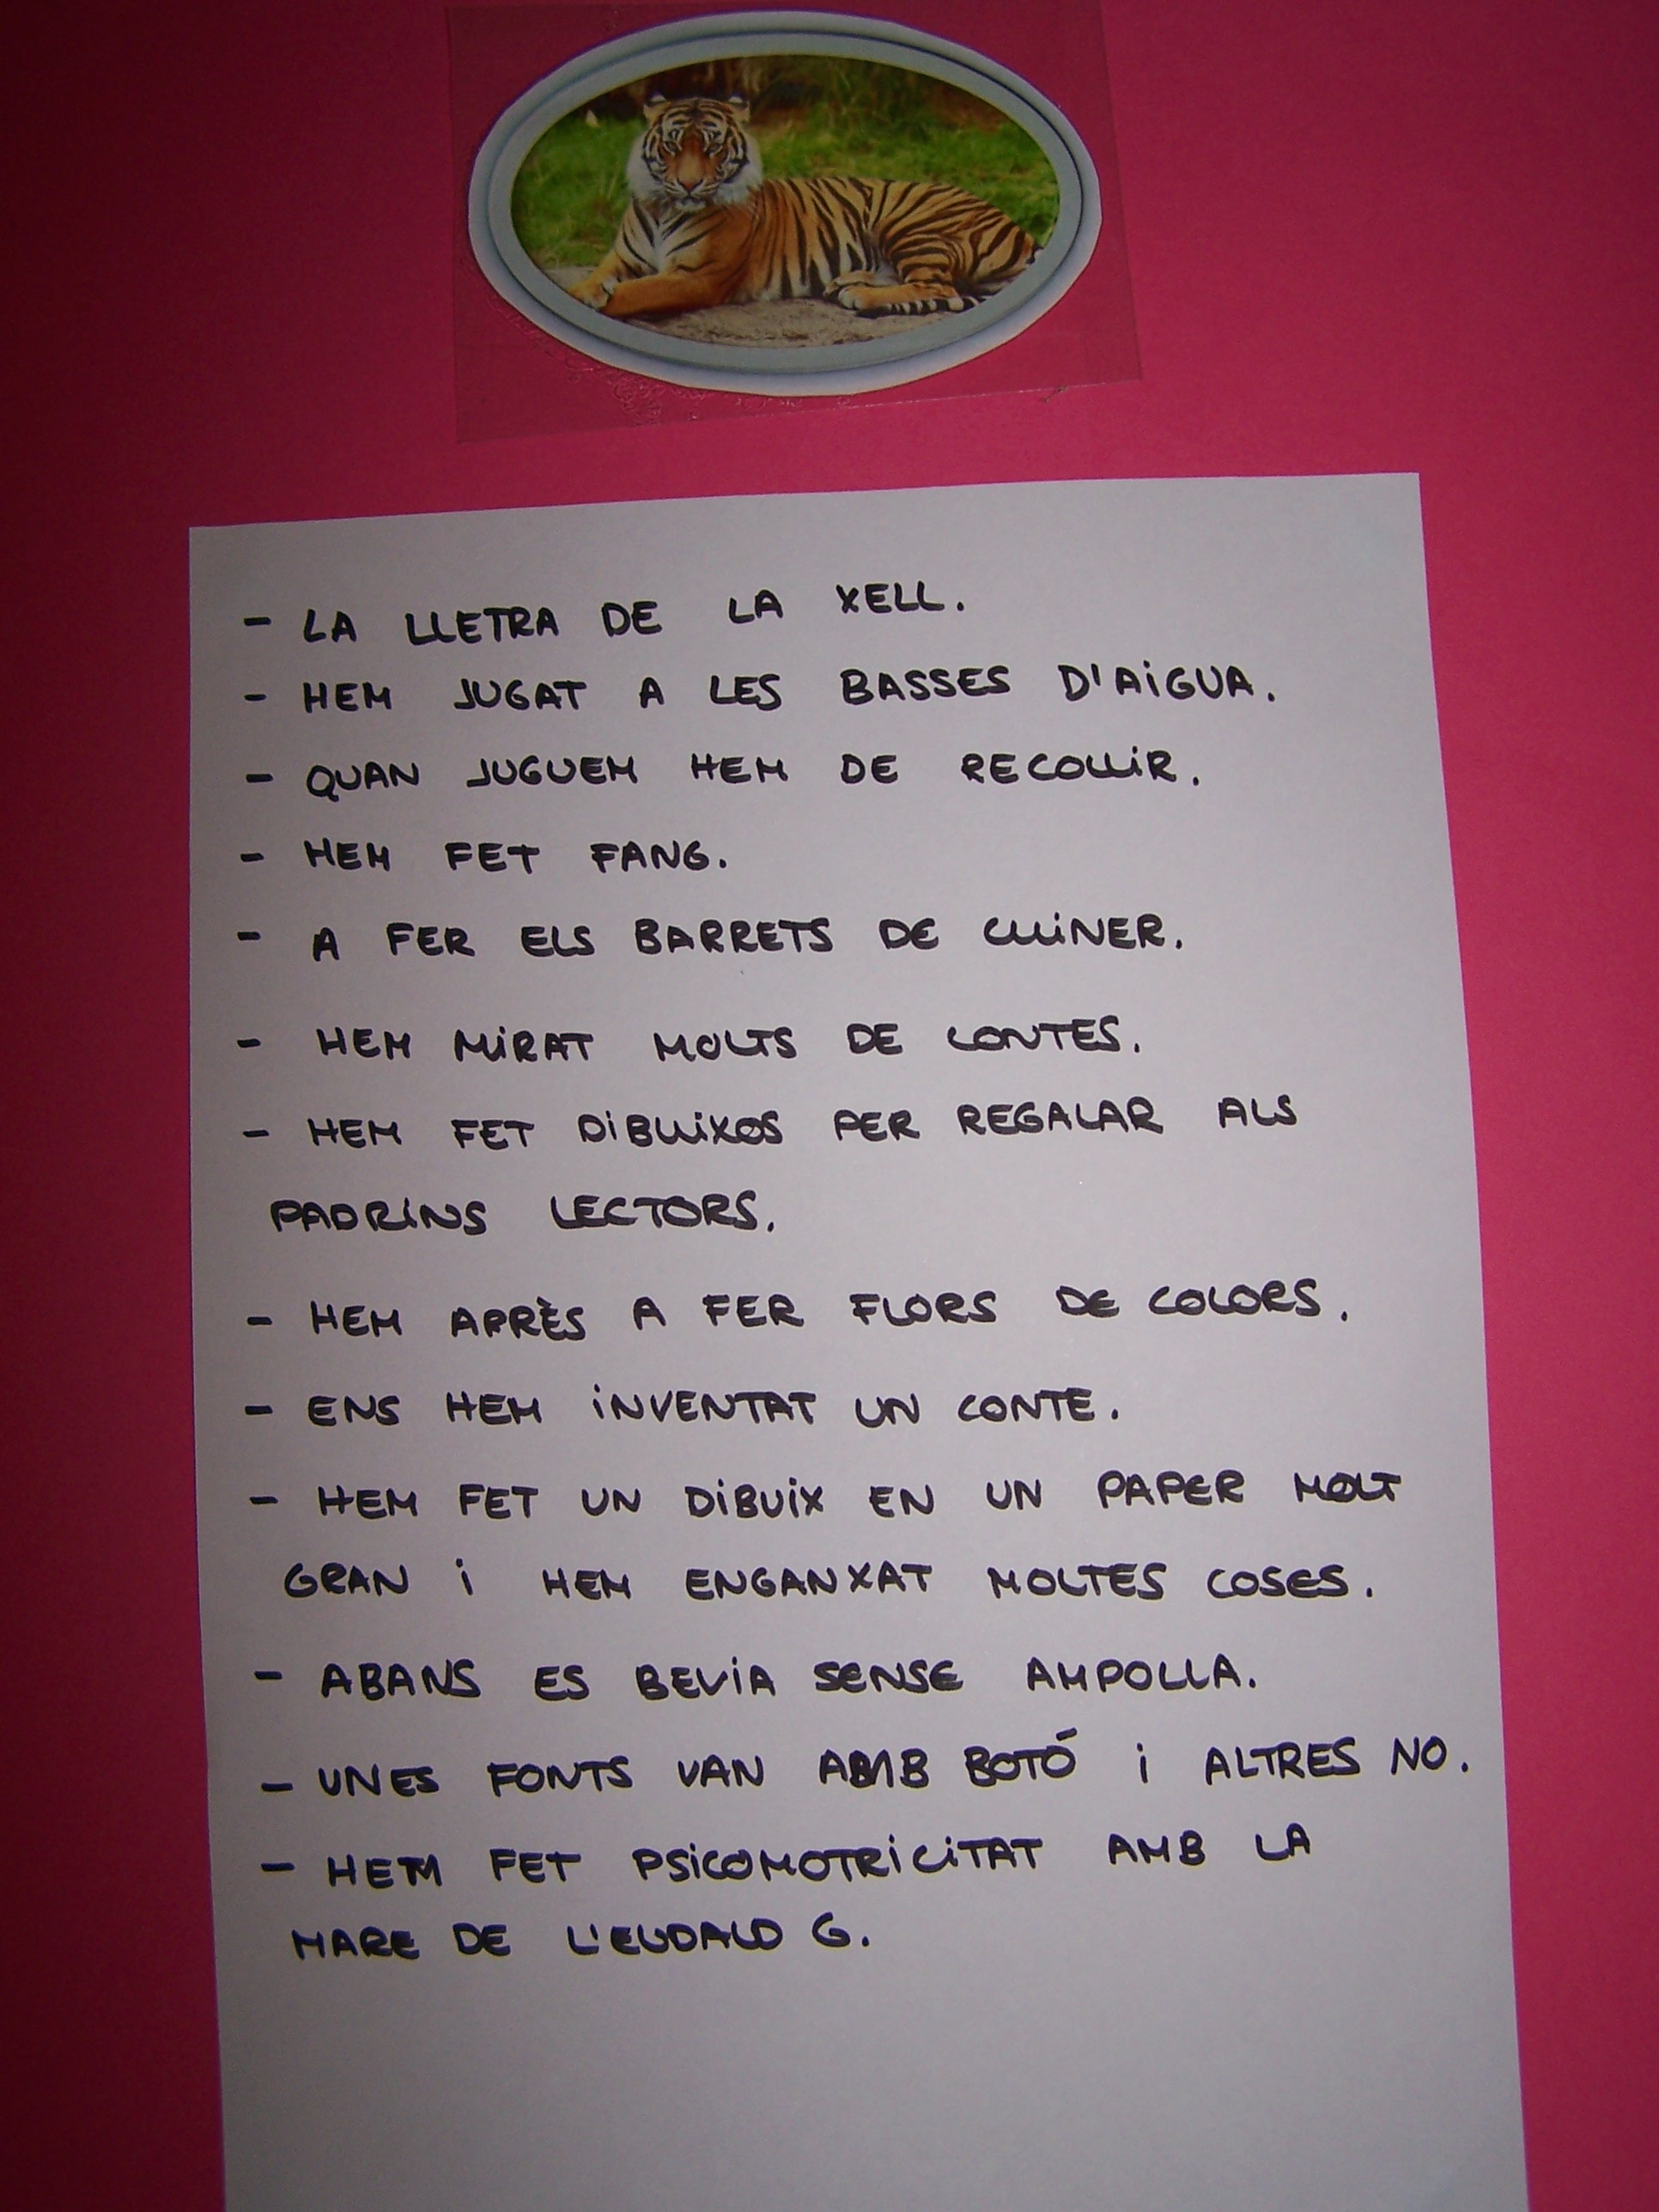 - LA LLETRA DE LA XELL.
- HEM JUGAT A LES BASSES D'AiGUA.
- QUAN JUGUEM HEM DE RECOLLiR.
- HEM FET FANG.
- A FER ELS BARRETS DE CUiNER.
- HEM MiRAT MOLTS DE CONTES.
- HEM FET DiBUiXOS PER REGALAR ALS
PADRiNS LECTORS.
- HEM APRÈS A FER FLORS DE COLORS.
- ENS HEM iNVENTAT UN CONTE.
- HEM FET UN DiBUiX EN UN PAPER MOLT
GRAN i HEM ENGANXAT MOLTES COSES.
- ABANS ES BEViA SENSE AMPOLLA.
- UNES FONTS VAN AMB BOTÓ i ALTRES NO.
- HEM FET PSiCOMOTRiCiTAT AMB LA
MARE DE L'EUDALD G.